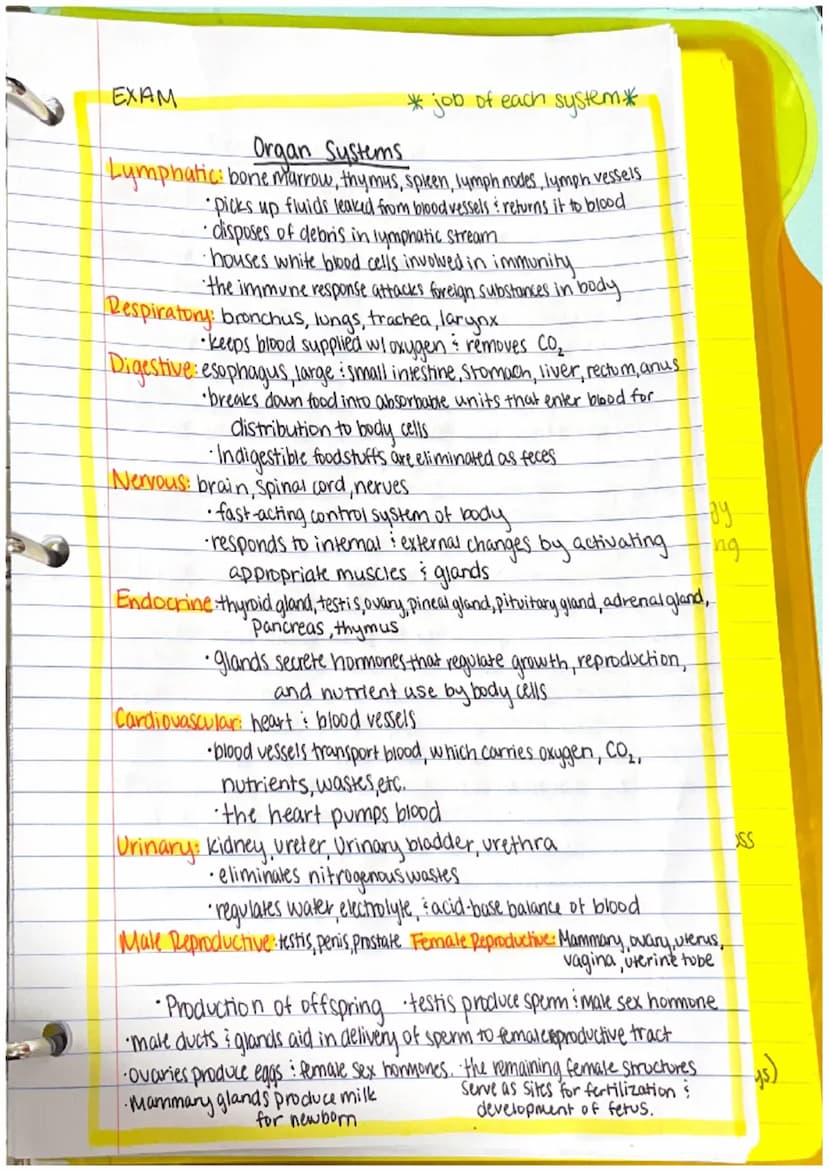 EXAM
* job of each system *
Organ Systems
Lymphatic: bone marrow, thymus, spleen, lymph nodes, lymph vessels
· picks up fluids leaked from blood vessels & returns it to blood
· disposes of debris in lymphatic stream
· houses white blood cells involved in immunity
· the immune response attacks foreign substances in body
Respiratory: bronchus, lungs, trachea, larynx
· keeps blood supplied w/ oxygen & removes CO₂
Digestive: esophagus, large & small intestine, stomach, liver, rectum, anus
· breaks down food into absorbable units that enter blood for
distribution to body cells
· Indigestible foodstuffs are eliminated as feces
Nervous: brain, spinal cord, nerves
· fast-acting control system of body
· responds to internal & external changes by activating
appropriate muscles & glands
Endocrine: thyroid gland, testis, ovary, pineal gland, pituitary gland, adrenal gland,
pancreas, thymus
· glands secrete hormones that regulate growth, reproduction,
and nutrient use by body cells
Cardiovascular: heart & blood vessels
· blood vessels transport blood, which carries oxygen, CO₂,
nutrients, wastes, etc.
· the heart pumps blood
Urinary: kidney, ureter, urinary bladder, urethra
· eliminates nitrogenous wastes
· regulates water, electrolyte, & acid-base balance of blood
Male Reproductive: testis, penis, prostate Female Reproductive: Mammary, ovary, uterus,
vagina, uterine tube
· Production of offspring · testis produce sperm & male sex hormone
· male ducts & glands aid in delivery of sperm to female reproductive tract
· ovaries produce eggs & female sex hormones. · the remaining female structures
serve as sites for fertilization &
development of fetus.
· Mammary glands produce milk
for newborn